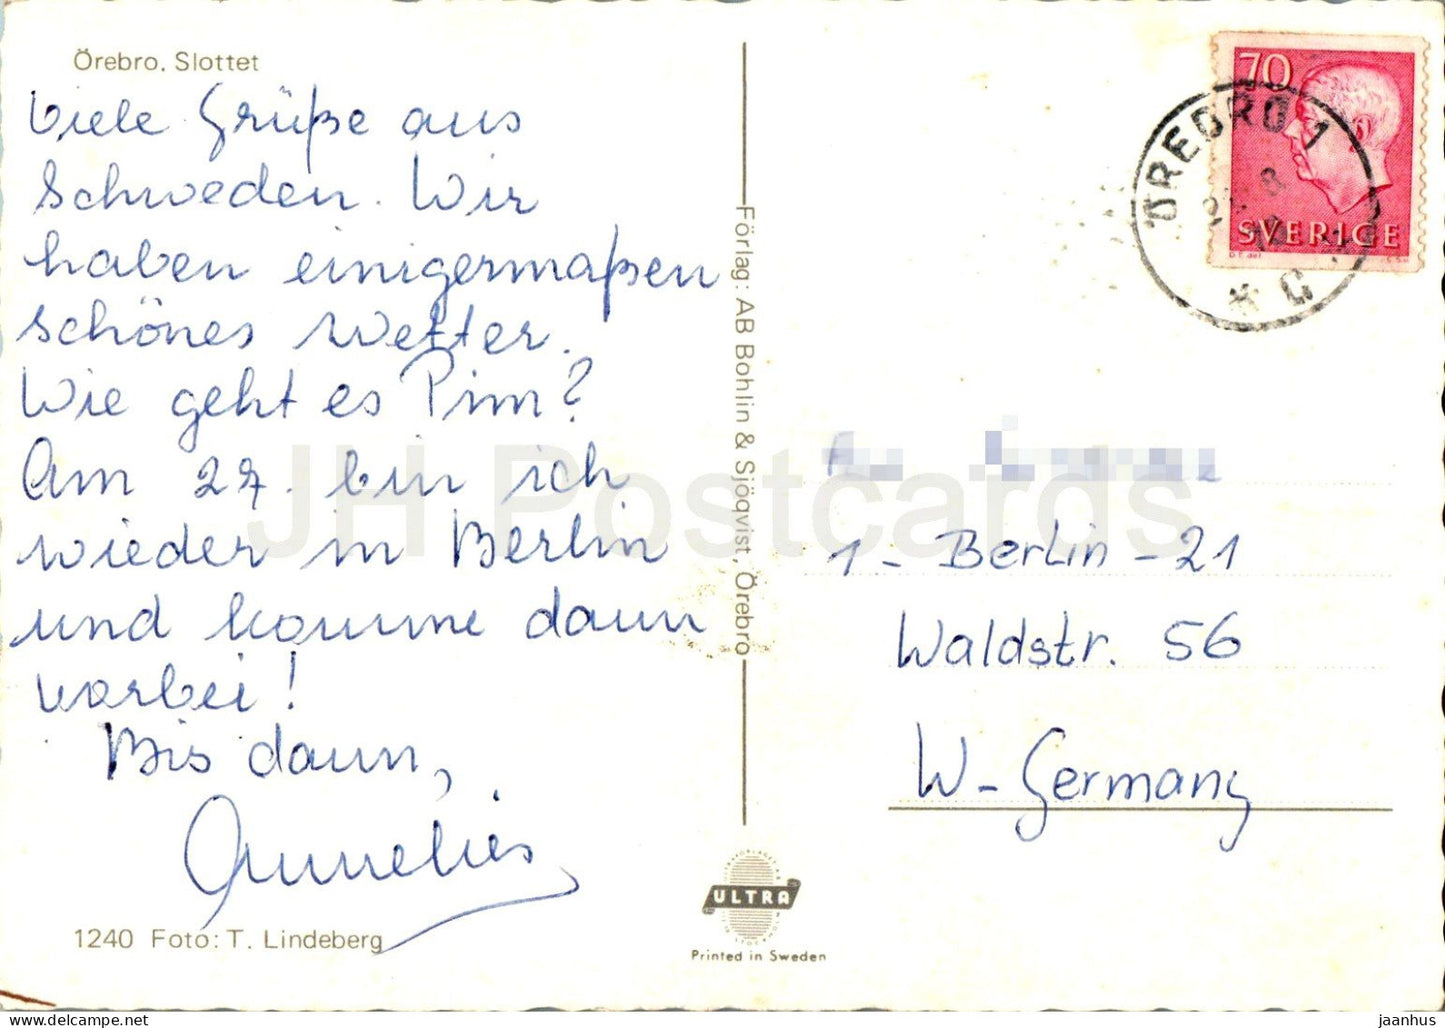 Örebro. Slottet
Viele Grüße aus
Schweden. Wir
haben einigermaßen
schönes Wetter.
Wie geht es Pim?
Am 27. bin ich
wieder in Berlin
und komme dann
vorbei!
Bis dann,
Annelies
1240 Foto: T. Lindeberg
Förlag: AB Bohlin & Sjöqvist, Örebro
ULTRA
Printed in Sweden
70
SVERIGE
ÖREBRO 1
* C
1 - Berlin - 21
Waldstr. 56
W - Germany
JH Postcards
jaanhus
https://www.delcampe.net